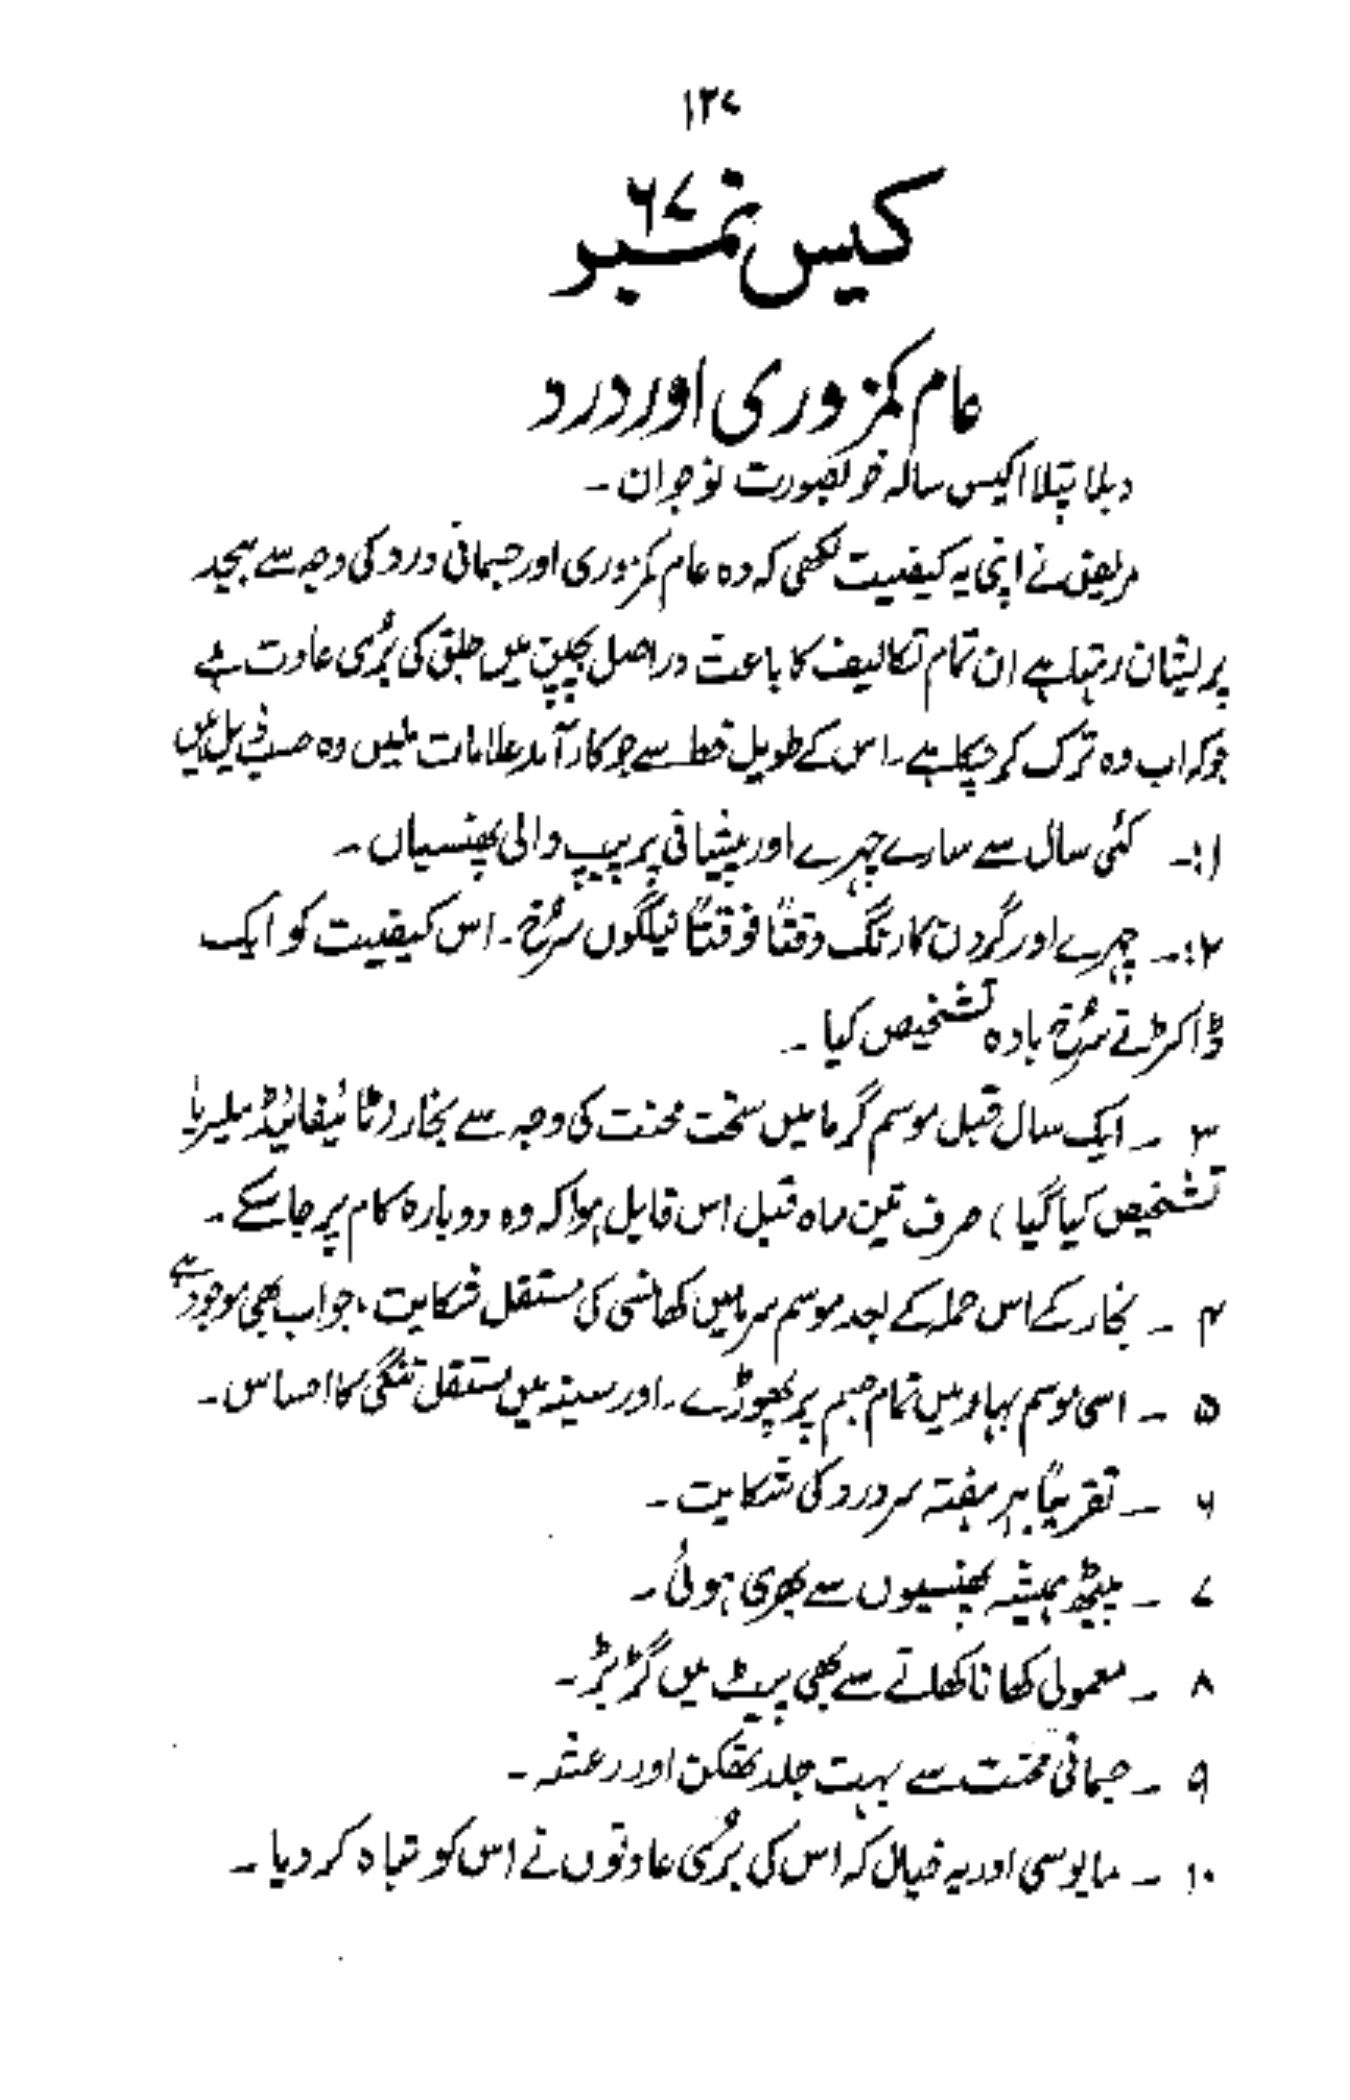 ۱۲۷
کیس نمبر ۶۷
عام کمزوری اور درد
دبلا پتلا اکیس سالہ خوبصورت نوجوان ۔
مریض نے اپنی یہ کیفیت لکھی کہ وہ عام کمزوری اور جسمانی درد کی وجہ سے بیحد
پریشان رہتا ہے ان تمام تکالیف کا باعث دراصل بچپن میں جلق کی بُری عادت ہے
جو کہ اب وہ ترک کر چکا ہے ۔ اس کے طویل خط سے جو کارآمد علامات ملیں وہ حسب ذیل ہیں
۱:۔ کئی سال سے سارے چہرے اور پیشانی پر پیپ والی پھنسیاں ۔
۲:۔ چہرے اور گردن کا رنگ وقتاً فوقتاً نیلگوں سُرخ ۔ اس کیفیت کو ایک
ڈاکٹر نے سُرخ بادہ تشخیص کیا ۔
۳ ۔ ایک سال قبل موسم گرما میں سخت محنت کی وجہ سے بخار (ٹائیفائیڈ ملیریا
تشخیص کیا گیا) صرف تین ماہ قبل اس قابل ہوا کہ وہ دوبارہ کام پر جا سکے ۔
۴ ۔ بخار کے اس حملہ کے بعد موسم سرما میں کھانسی کی مستقل شکایت ، جو اب بھی موجود ہے
۵ ۔ اسی موسم بہار میں تمام جسم پر پھوڑے ۔ اور سینہ میں مستقل تنگی کا احساس ۔
۶ ۔ تقریباً ہر ہفتہ سر درد کی شکایت ۔
۷ ۔ پیٹھ ہمیشہ پھنسیوں سے بھری ہوئی ۔
۸ ۔ معمولی کھانا کھانے سے بھی پیٹ میں گڑبڑ ۔
۹ ۔ جسمانی محنت سے بہت جلد تھکن اور رعشہ ۔
۱۰ ۔ مایوسی اور یہ خیال کہ اس کی بُری عادتوں نے اس کو تباہ کر دیا ۔